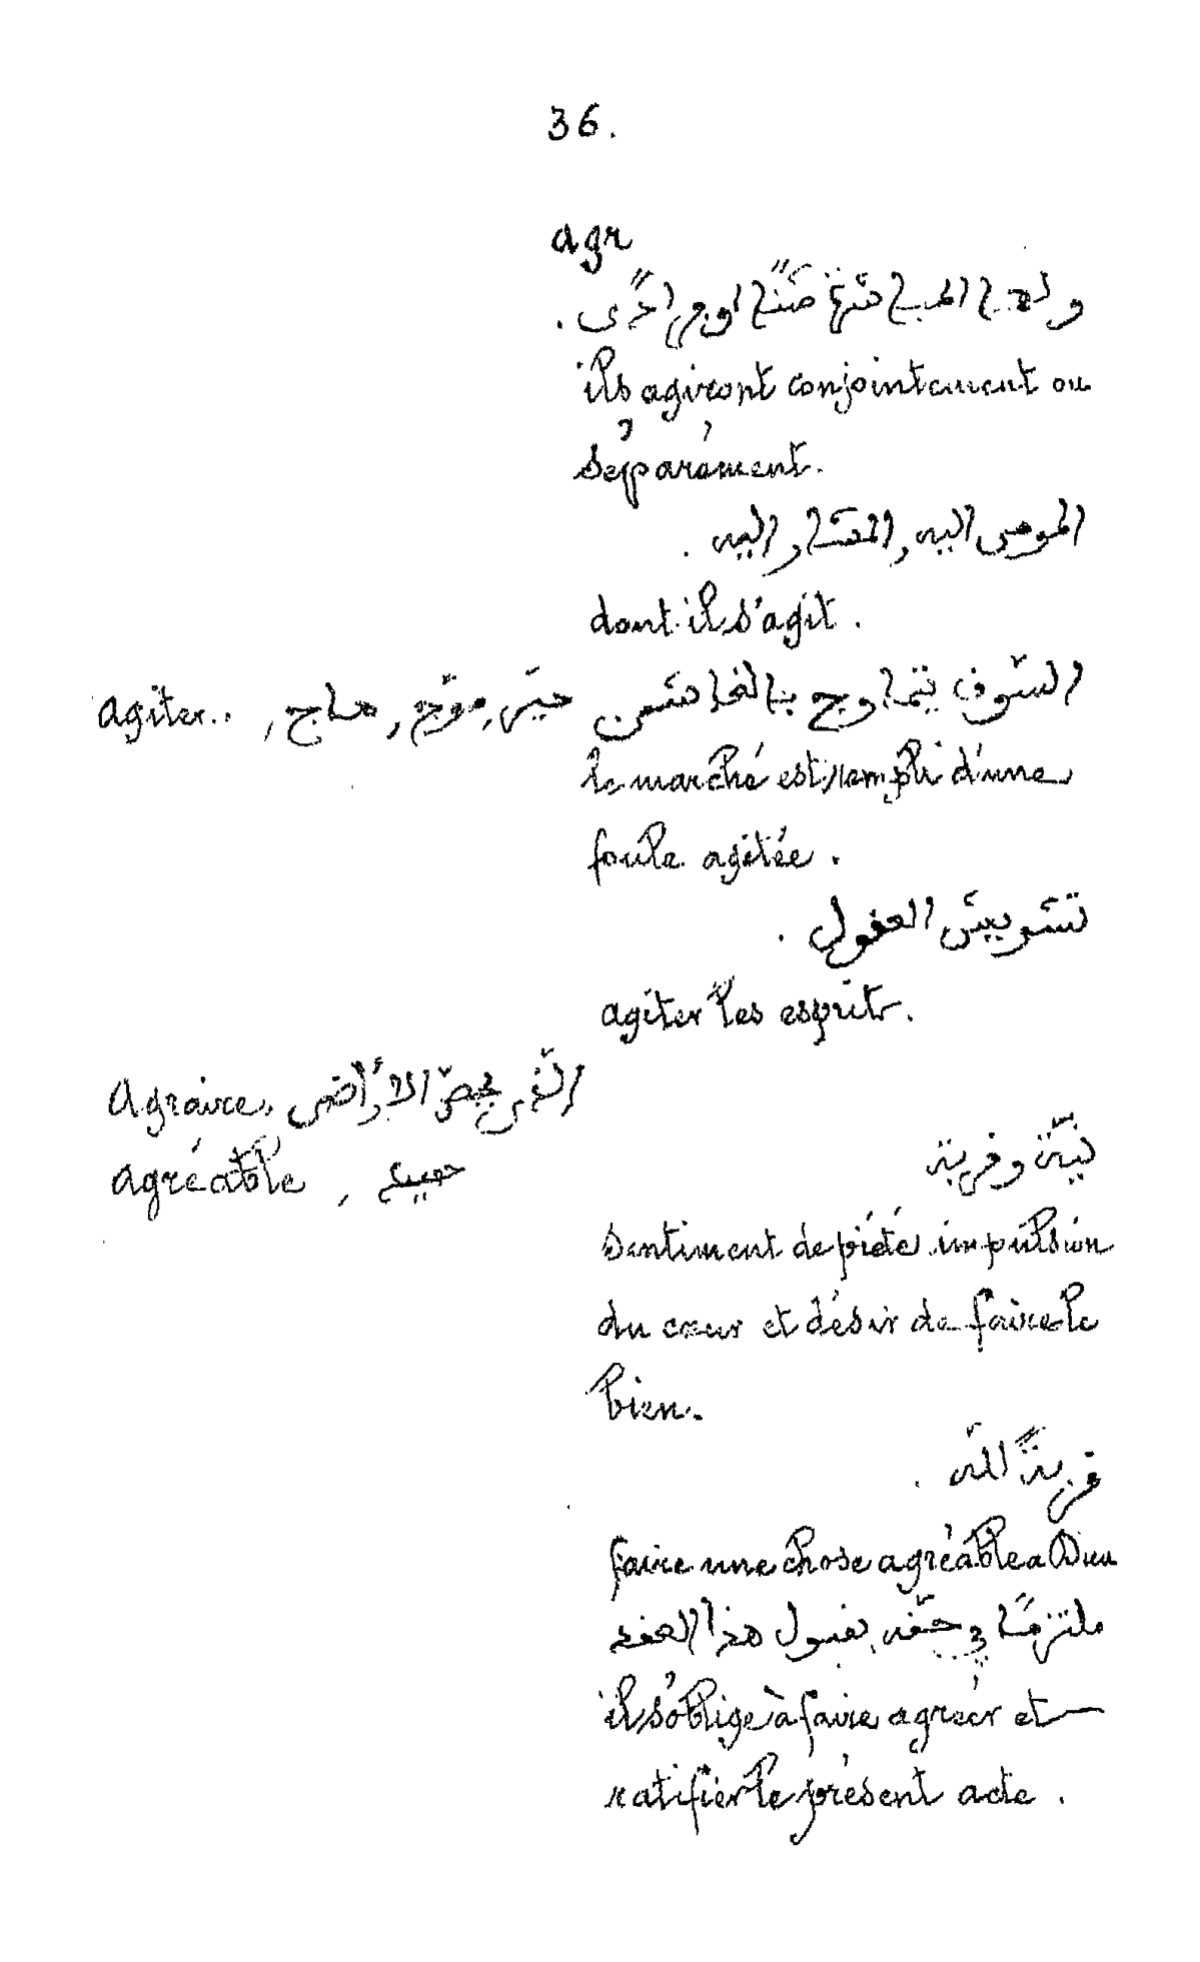 36.
agr
ils agiront conjointement ou
séparément.
المومى اليه، المشار اليه.
dont il s'agit.
agiter.. , هاج, موّج, حيّر
السّوق يتماوج بالغاشى
le marché est rempli d'une
foule agitée.
تشويش العقول.
agiter les esprit.
Agraire, الّذى يخصّ الأراضى
agréable,
نيّة وقربة
sentiment de piété impulsion
du cœur et désir de faire le
bien.
قربةً للّه.
faire une chose agréable a Dieu
ملتزمًا في حقّه بقبول هذا العقد
il s'oblige à faire agréer et
ratifier le présent acte.